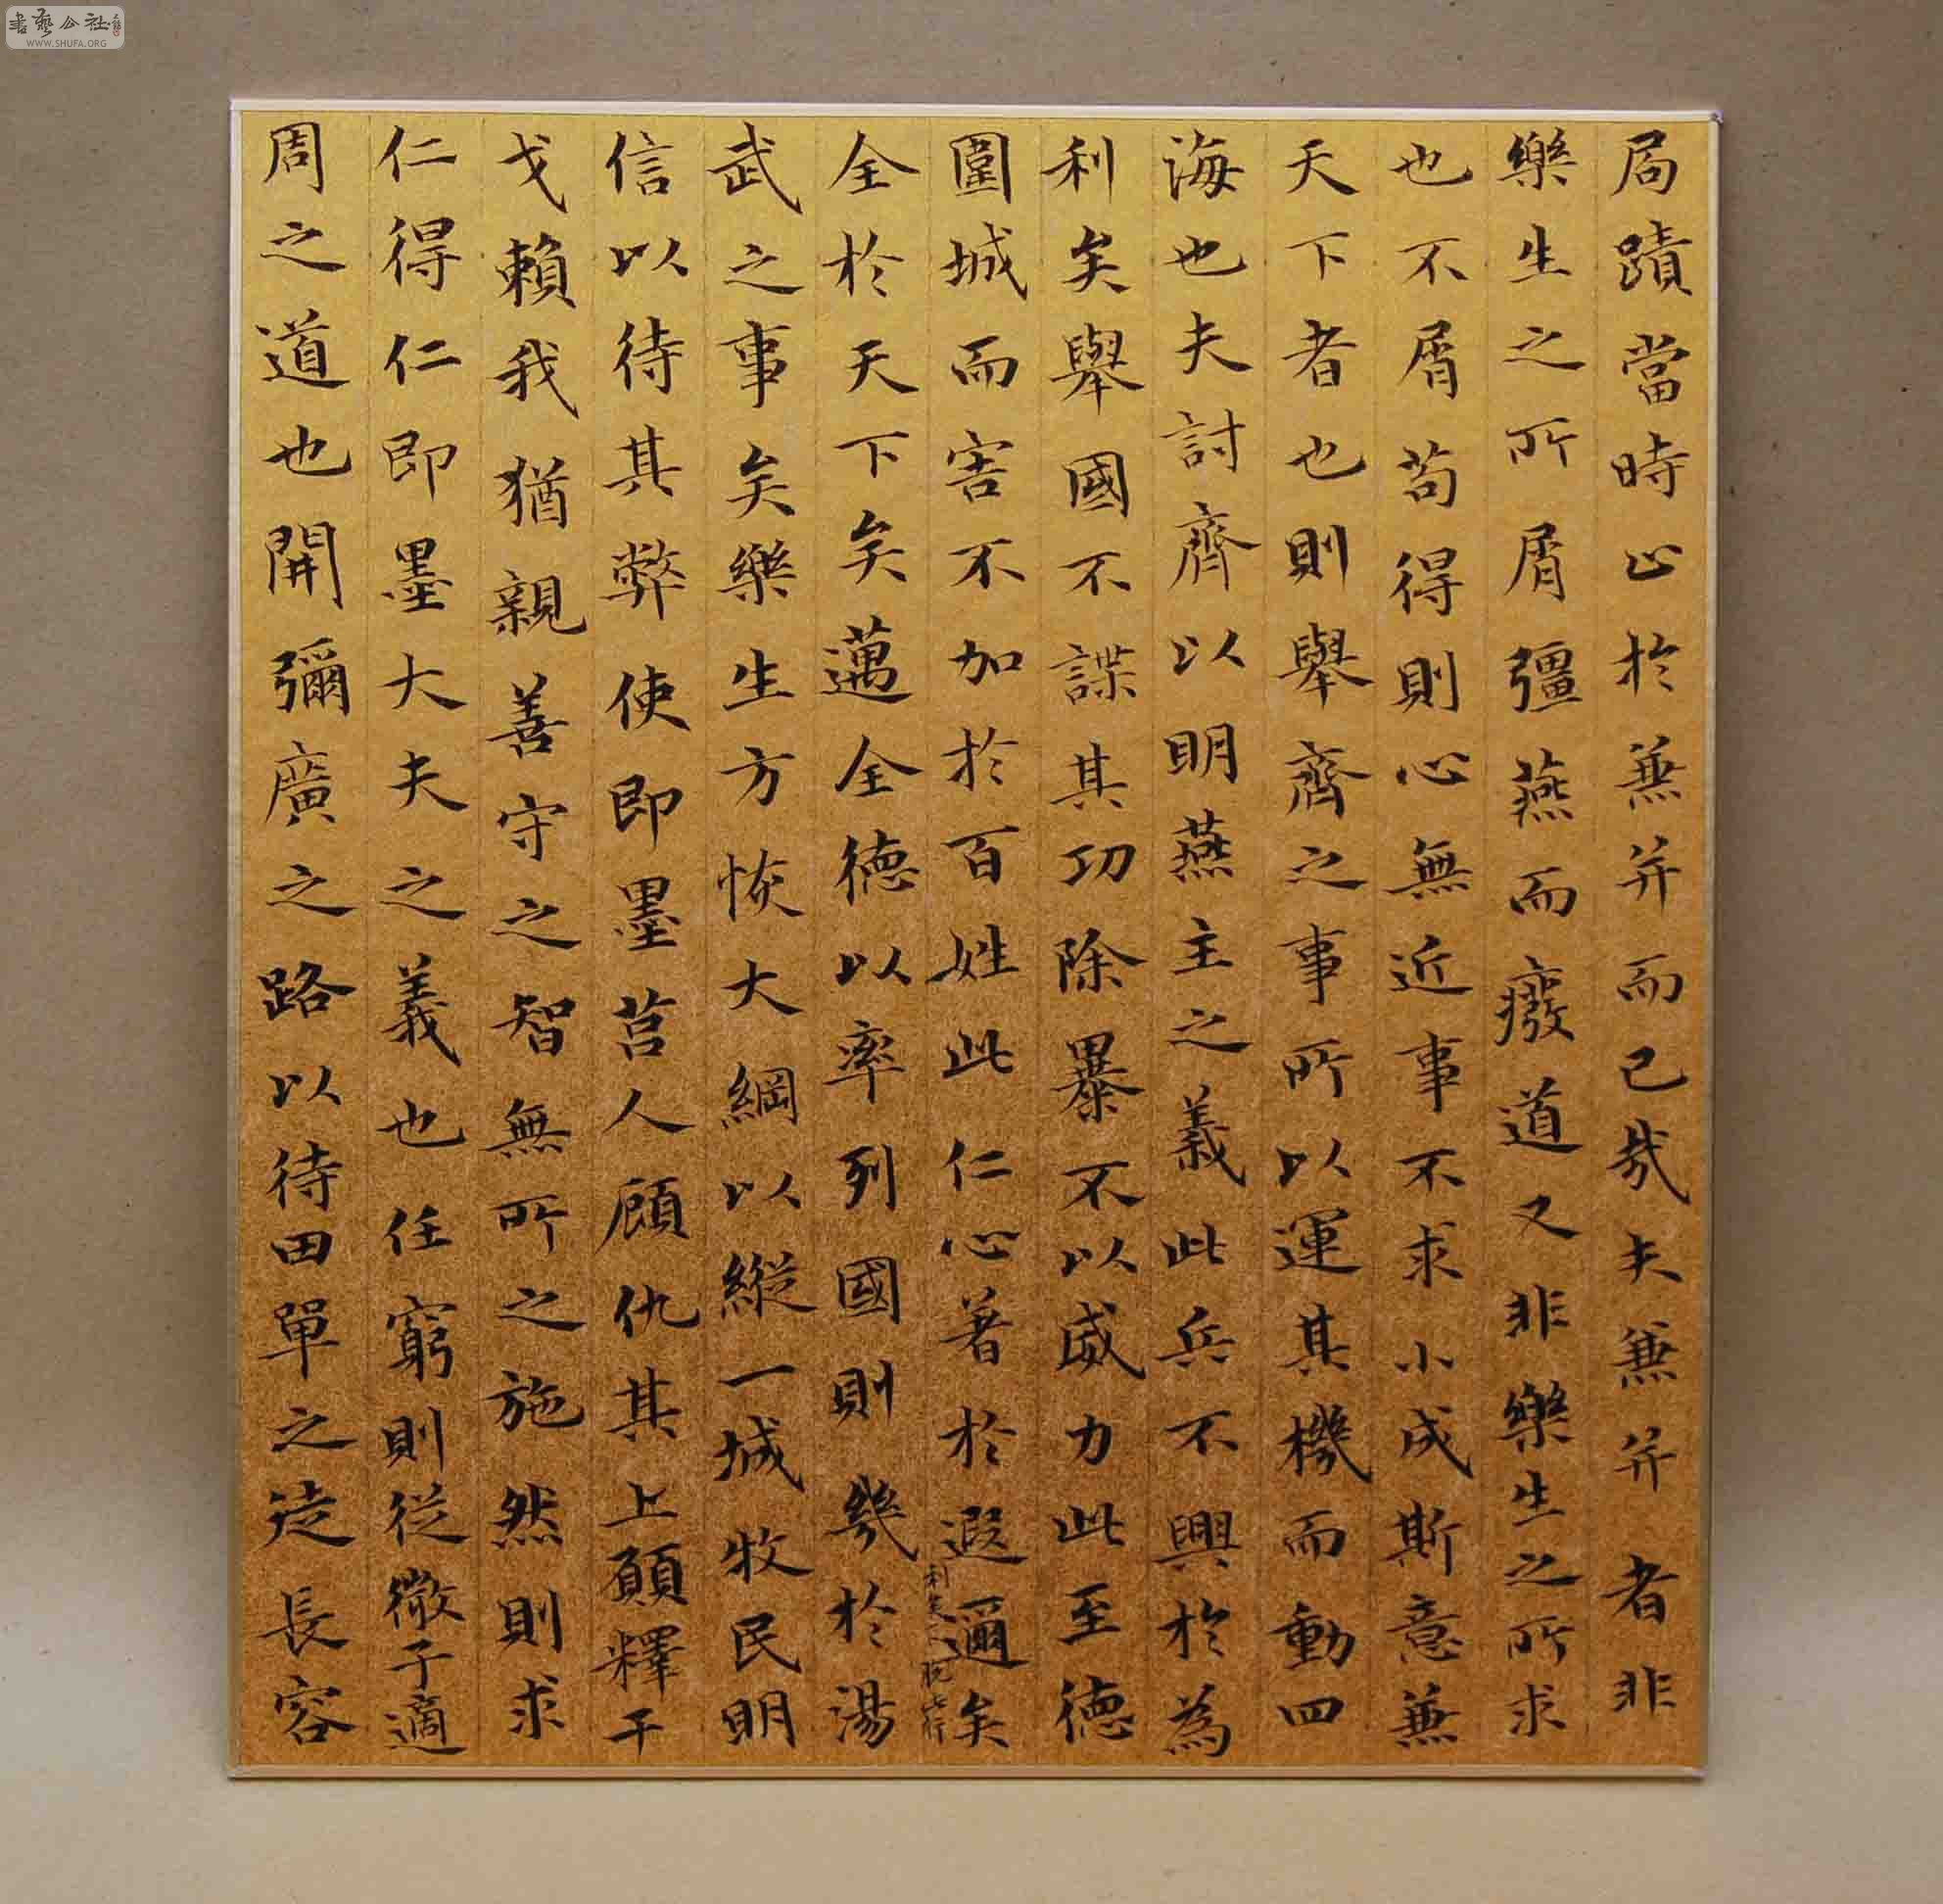 書藝公社
WWW.SHUFA.ORG
局蹟當時止於兼并而已哉夫兼并者非
樂生之所屑彊燕而癈道又非樂生之所求
也不屑茍得則心無近事不求小成斯意兼
天下者也則舉齊之事所以運其機而動四
海也夫討齊以明燕主之義此兵不興於為
利矣舉國不謀其功除暴不以威力此至德
圍城而害不加於百姓此仁心著於遐邇矣
全於天下矣邁全德以率列國則幾於湯
武之事矣樂生方恢大綱以縱二城牧民明
信以待其弊使即墨莒人顧仇其上願釋干
戈賴我猶親善守之智無所之施然則求
仁得仁即墨大夫之義也任窮則從微子適
周之道也開彌廣之路以待田單之徒長容